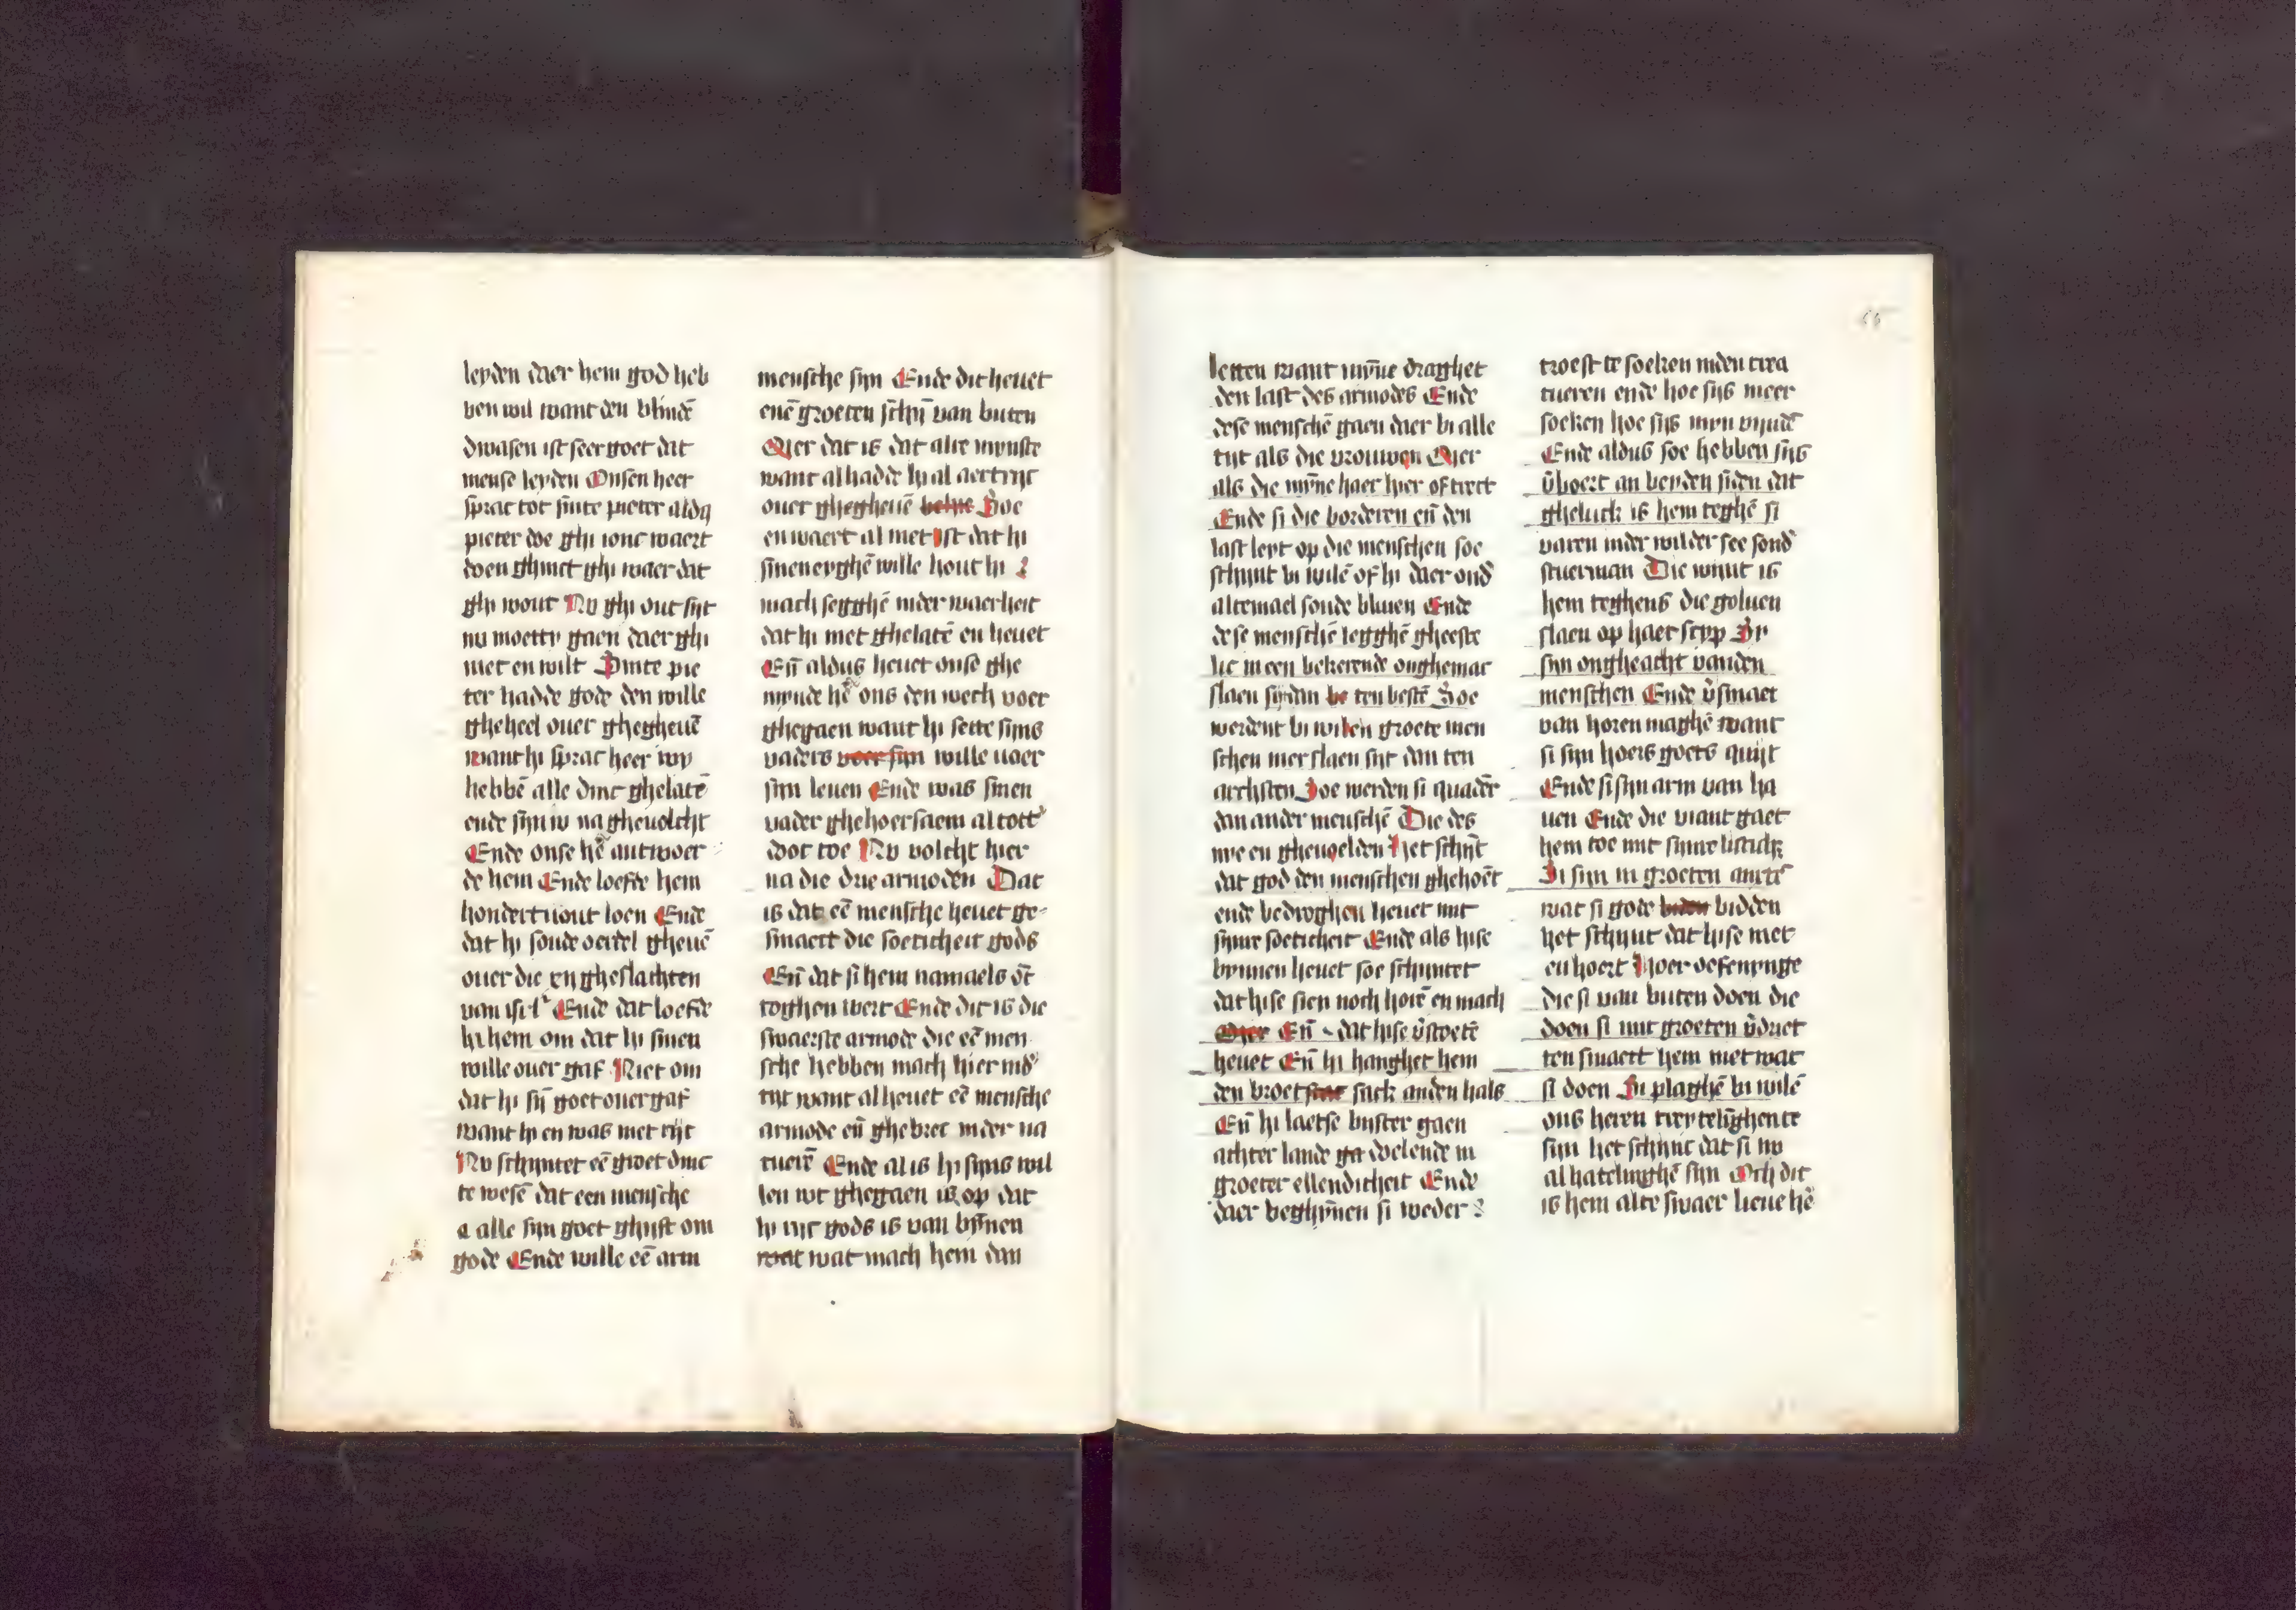 leyden daer hem god heb
ben wil want den blindē
dwasen ist seer goet dat
mense leyden Onsen heer
sprac tot sinte pieter aldꝯ
pieter doe ghi ionc waert
doen ghinct ghi waer dat
ghi wout Nv ghi out sijt
nu moetty gaen daer ghi
niet en wilt Sinte pie
ter hadde gode den wille
gheheel ouer ghegheuē
want hi sprac heer wy
hebbē alle dinc ghelatē
ende sijn v na gheuolcht
Ende onse hē antwoer
de hem Ende loefde hem
hondertuout loen Ende
dat hi soude oerdel gheuē
ouer die xij gheslachten
van isrl Ende dat loefde
hi hem om dat hi sinen
wille ouer gaf Niet om
dat hi sijn goet ouer gaf
want hi en was niet rijc
Nv schijntet eē groet dinc
te wesē dat een mensche
alle sijn goet ghift om
gode Ende wille eē arm
mensche sijn Ende dit heuet
enē groeten schijn van buten
Mer dat is dat alre mynste
want al hadde hi al aertrijc
ouer ghegheuē Soe
en waert al niet Ist dat hi
sinen eyghē wille hout hi
mach segghē inder waerheit
dat hi niet ghelatē en heuet
Eñ aldus heuet onse ghe
mynde hē ons den wech voer
ghegaen want hi sette sijns
vaders voer sijn wille voer
sijn leuen Ende was sinen
vader ghehoersaem al totter
doot toe Nv volcht hier
na die drie armoden Dat
is dat eē mensche heuet ge
smaect die soeticheit gods
Eñ dat si hem namaels ōt
toghen wert Ende dit is die
swaerste armode die eē men
sche hebben mach hier inder
tijt want al heuet eē mensche
armode eñ ghebrec inder na
tuerē Ende al is hi sijns wil
len wt ghegaen is op dat
hi rijc gods is van bīnen
wat mach hem dan
letten want mȳne draghet
den last des armodes Ende
dese menschē gaen daer bi alle
tijt als die vrouwen Mer
als die mȳne haer hier of trect
Ende si die borderen eñ den
last leyt op die menschen soe
schijnt bi wilē of hi daer onder
altemael soude bliuen Ende
dese menschē legghē gheeste
lic in een bekerende onghemac
slaen si dan be ten bestē Soe
werdent bi wilen groete men
schen mer slaen sijt dan ten
archsten Soe werden si quader
dan ander menschē Die des
nye en gheuoelden Het schijnt
dat god den menschen ghehoēt
ende bedroghen heuet mit
sijnre soeticheit Ende als hise
bynnen heuet soe schijntet
dat hise sien noch horē en mach
Mer Eñ dat hise v̄stoetē
heuet Eñ hi hanghet hem
den broet sack anden hals
Eñ hi laetse bijster gaen
achter lande ga doelende in
groeter ellendicheit Ende
daer beghīnen si weder
troest te soeken inden crea
tueren ende hoe sijs meer
soeken hoe sijs myn vindē
Ende aldus soe hebben sijs
v̄boert an beyden siden dat
gheluck is hem teghē si
varen inder wilder see sonder
stuerman Die wint is
hem teghens die goluen
slaen op haer scyp Si
sijn ongheacht vanden
menschen Ende v̄smaet
van horen maghē want
si sijn hoers goets quijt
Ende si sijn arm van ha
uen Ende die viant gaet
hem toe mit sijnre listich
Si sijn in groeten anxtē
wat si gode bidden
het schijnt dat hise niet
en hoert Hoer oefenynge
die si van buten doen die
doen si mit groeten v̄driet
ten smaect hem niet wat
si doen Si plaghē bi wilē
ons heren treytelīghen te
sijn het schijnt dat si nv
al hatelinghē sijn Och dit
is hem alte swaer lieue hē